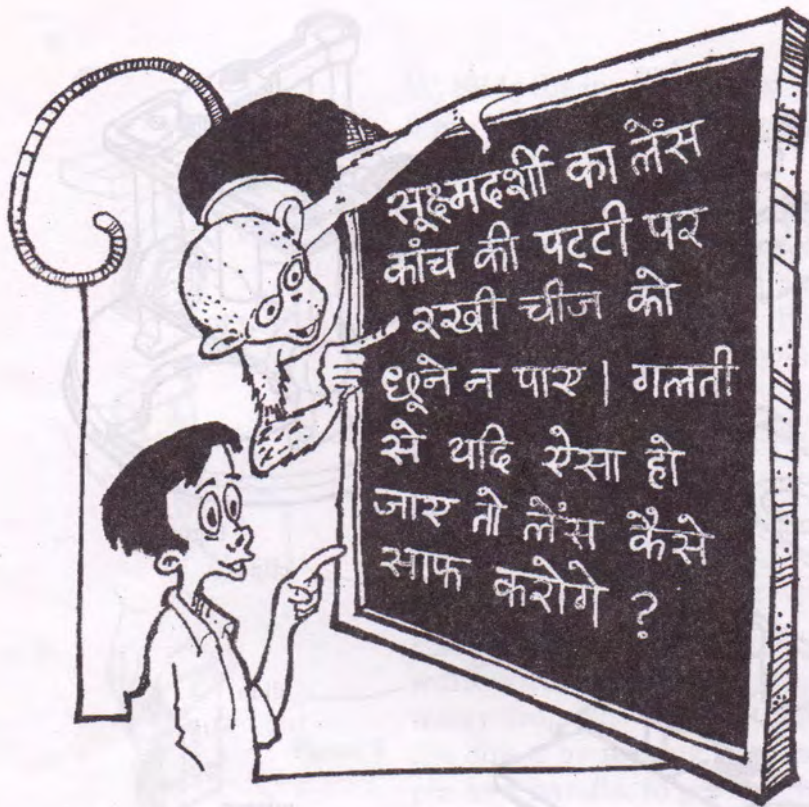 सूक्ष्मदर्शी का लेंस
कांच की पट्टी पर
रखी चीज को
छूने न पाए। गलती
से यदि ऐसा हो
जाए तो लेंस कैसे
साफ करोगे ?